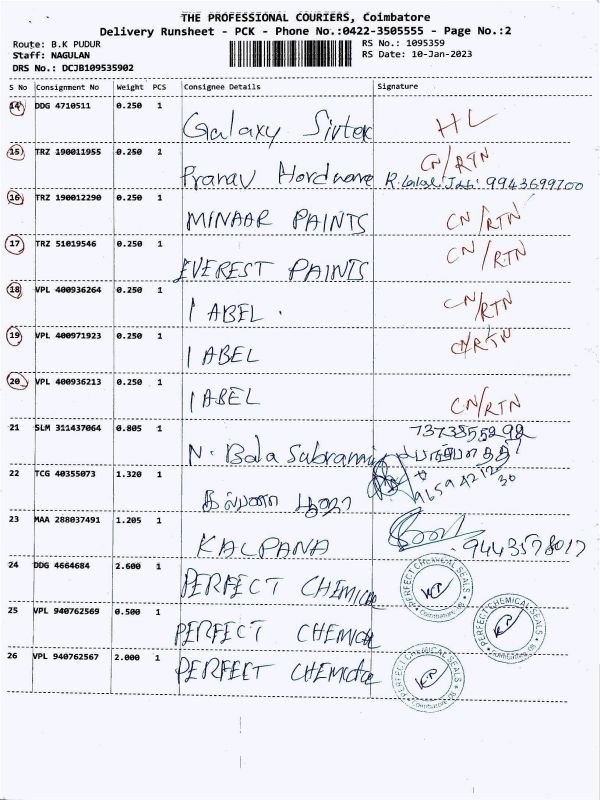 THE PROFESSIONAL COURIERS, Coimbatore
Delivery Runsheet - PCK - Phone No.:0422-3505555 - Page No.:2
Route: B.K PUDUR
RS No.: 1095359
Staff: NAGULAN
RS Date: 10-Jan-2023
DRS No.: DCJB109535902
S No Consignment No Weight PCS Consignee Details Signature
14 DDG 4710511 0.250 1
Galaxy HL
15 TRZ 190011955 0.250 1 CN/RTN
Pranav Hardware 9943699700
16 TRZ 190012290 0.250 1
MINAAR PAINTS CN/RTN
17 TRZ 51019546 0.250 1 CN/RTN
EVEREST PAINTS
18 VPL 400936264 0.250 1
1 ABEL. CN/RTN
19 VPL 400971923 0.250 1 CN/RTN
1 ABEL
20 VPL 400936213 0.250 1
1 ABEL CN/RTN
21 SLM 311437064 0.805 1 7373855299
N. Bala Subramni
22 TCG 40355073 1.320 1
23 MAA 288037491 1.205 1
KALPANA 9443578017
24 DDG 4664684 2.600 1
PERFECT CHEMICAL PERFECT CHEMICAL SEALS Coimbatore
25 VPL 940762569 0.500 1
PERFECT CHEMICAL PERFECT CHEMICAL SEALS Coimbatore
26 VPL 940762567 2.000 1
PERFECT CHEMICAL PERFECT CHEMICAL SEALS Coimbatore